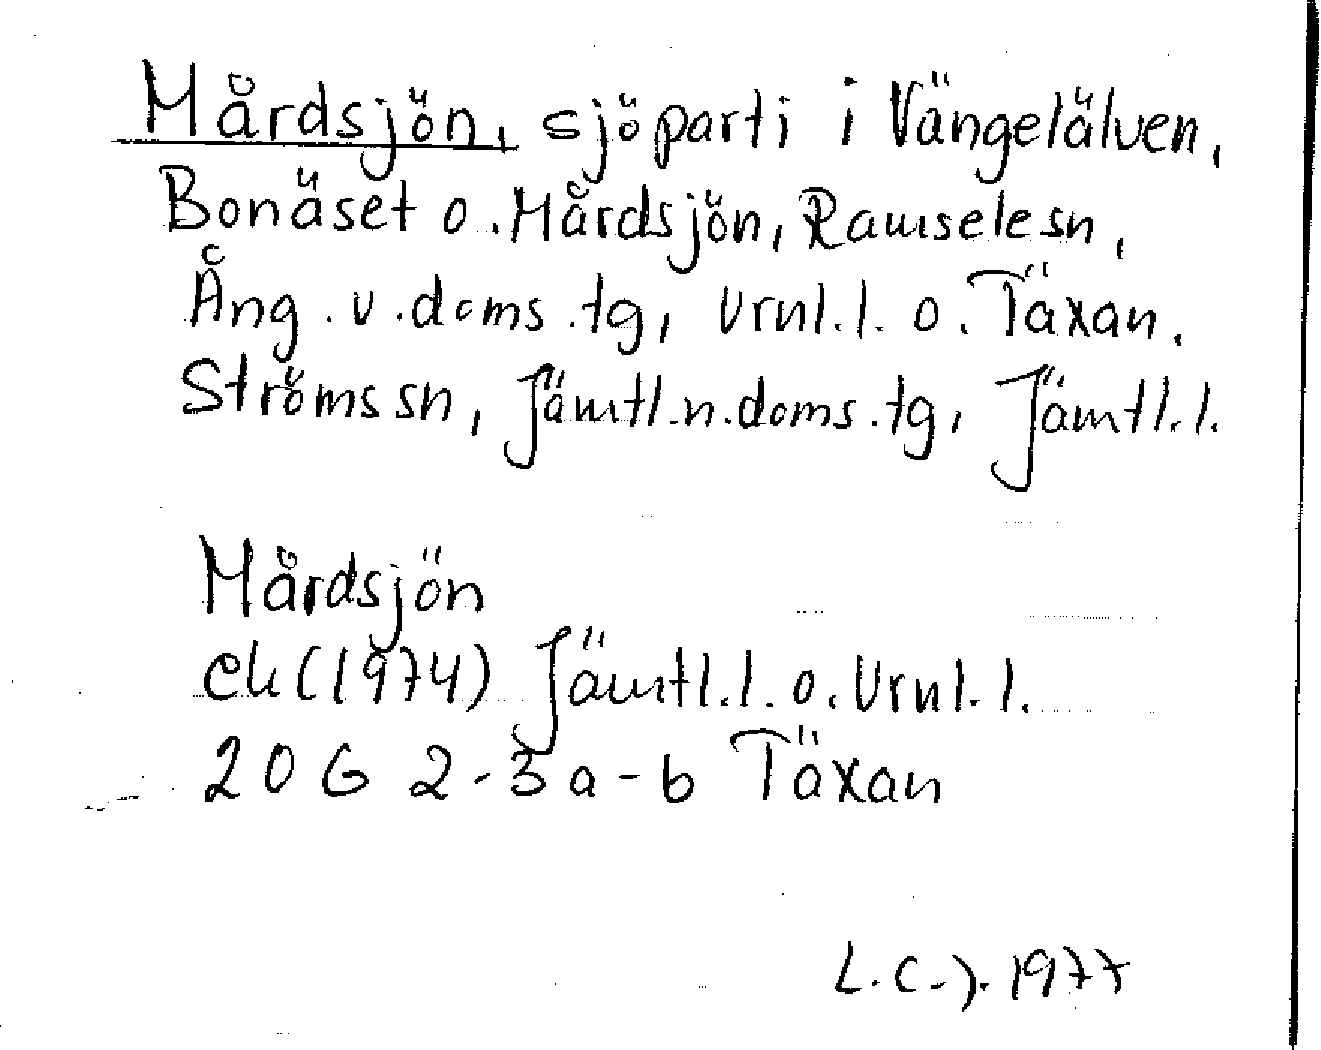 Mårdsjön, sjöparti i Vängelälven,
Bonäset o. Mårdsjön, Ramsele sn,
Ång. v. doms. tg, Vrnl. l. o. Täxan.
Ströms sn, Jämtl. n. doms. tg, Jämtl. l.
Mårdsjön
ek (1974) Jämtl. l. o. Vrnl. l.
20 G 2-3 a-b Täxan
L.C-J. 1977